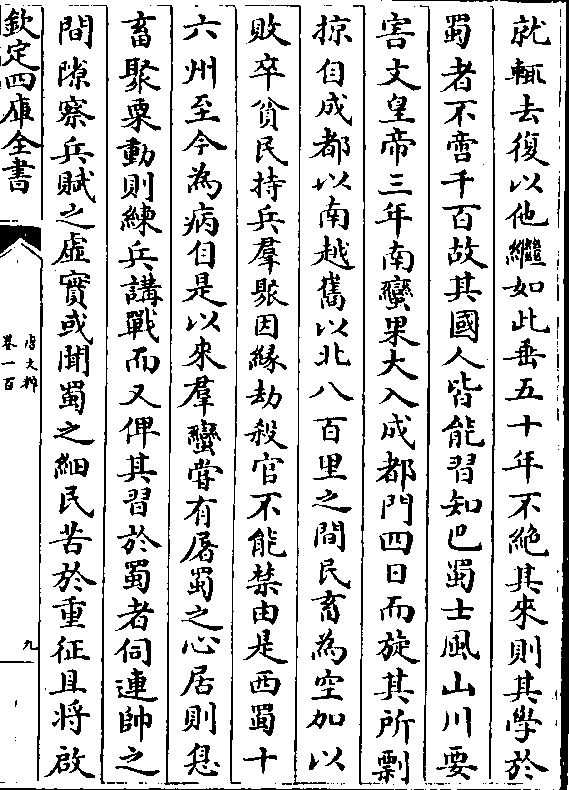 就輒去復以他繼如此垂五十年不絶其來則其學於
蜀者不啻千百故其國人皆能習知巴蜀士風山川要
害文皇帝三年南蠻果大入成都門四日而旋其所剽
掠自成都以南越巂以北八百里之間民畜為空加以
敗卒貧民持兵羣聚因緣劫殺官不能禁由是西蜀十
六州至今為病自是以來羣蠻嘗有屠蜀之心居則息
畜聚粟動則練兵講戰而又俾其習於蜀者伺連帥之
間隙察兵賦之虛實或聞蜀之細民苦於重征且將啟
欽定四庫全書
唐文粹
卷一百
九